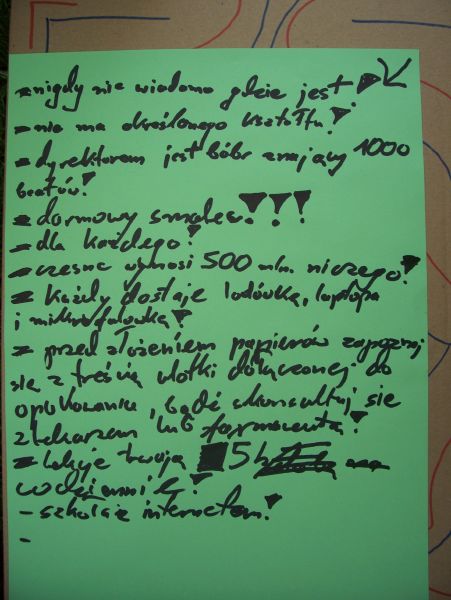 - nigdy nie wiadomo gdzie jest!
- nie ma określonego kształtu!
- dyrektorem jest bóbr znający 1000
beatów!
- darmowy smalec!!!
- dla każdego!
- czesne wynosi 500 mln. niczego!
- każdy dostaje lodówkę, laptopa
i mikrofalówkę!
- przed złożeniem papierów zapoznaj
się z treścią ulotki dołączonej do
opakowania, bądź skonsultuj się
z lekarzem lub farmaceutą!
- lekcje trwają 5h
codziennie!
- szkoła z internetem!
-